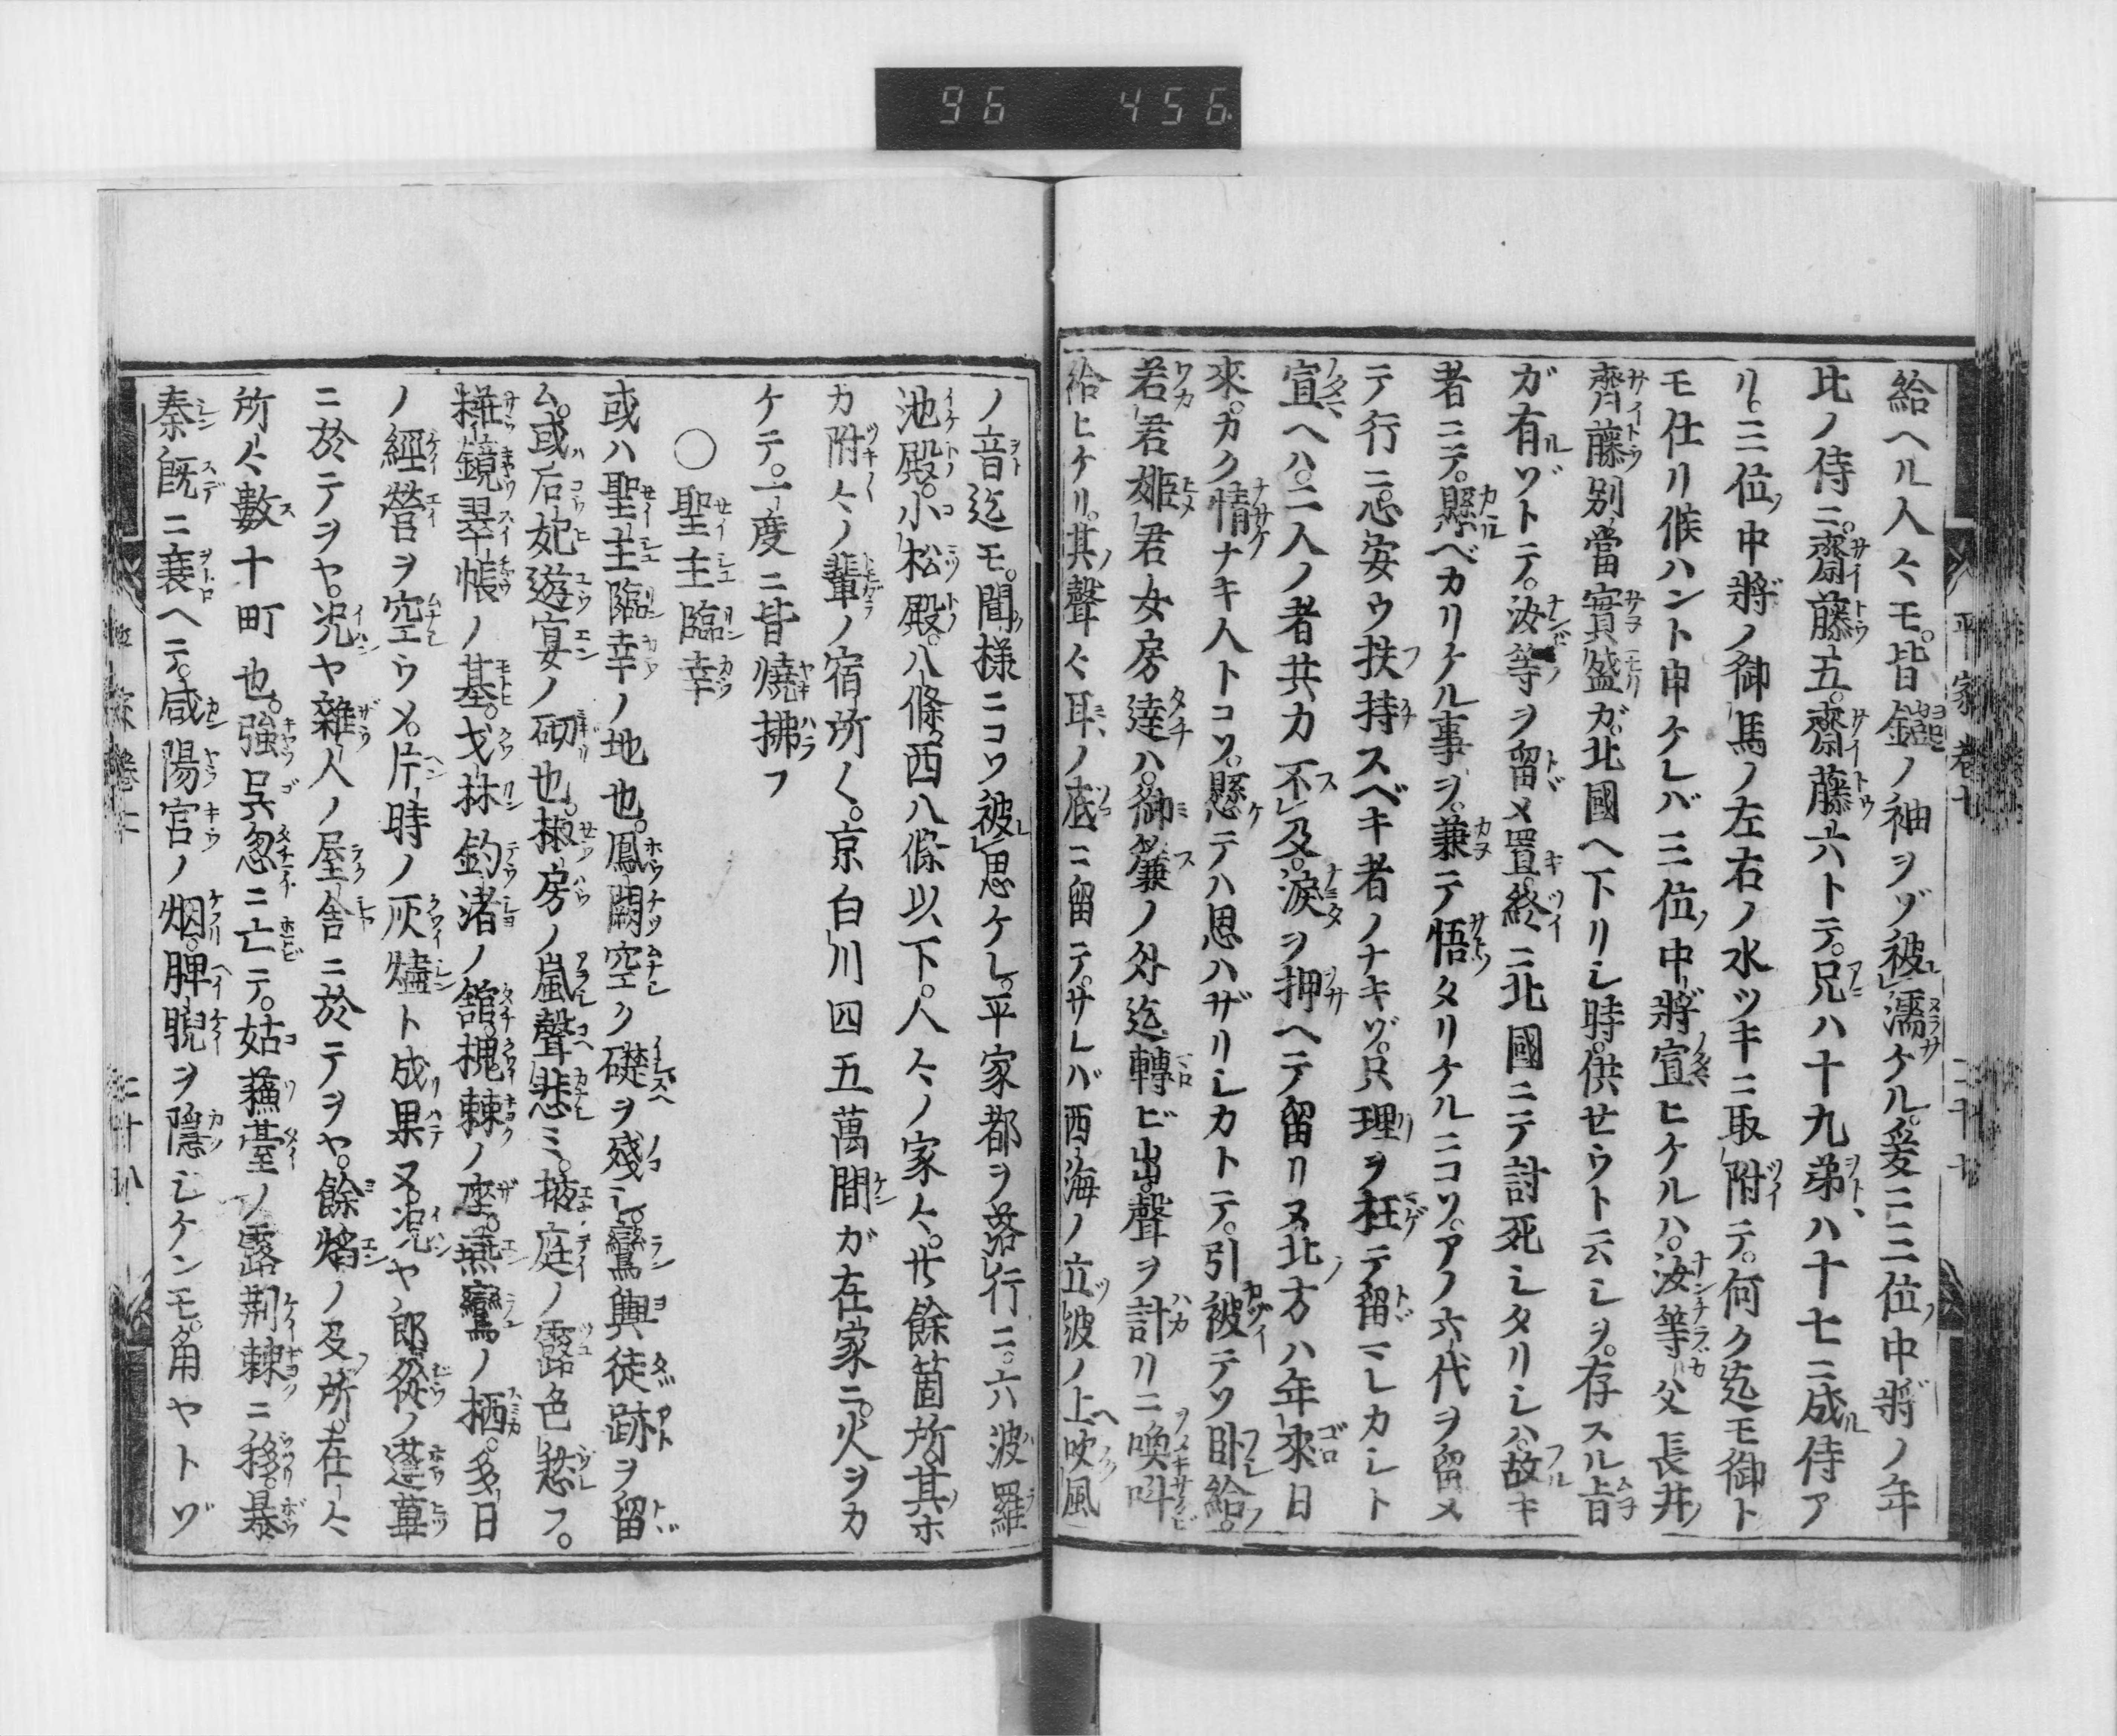 96 456
平家卷七
給ヘル人々モ。皆鎧ノ袖ヲゾ被濡ケル。爰ニ三位中將ノ年
比ノ侍ニ。齋藤五。齋藤六トテ。兄ハ十九弟ハ十七ニ成侍ア
リ。三位中將ノ御馬ノ左右ノ水ツキニ取附テ。何ク迄モ御ト
モ仕リ候ハント申ケレバ三位中將宣ヒケルハ。汝等父長井
齊藤別當實盛ガ。北國ヘ下リシ時。供せウト云シヲ。存スル旨
ガ有ゾトテ。汝等ヲ留メ置。終ニ北國ニテ討死シタリシハ。故キ
者ニテ。懸ベカリケル事ヲ。兼テ悟タリケルニコソ。アノ六代ヲ留メ
テ行ニ。心安ウ扶持スベキ者ノナキゾ。只理ヲ枉テ留マレカシト
宣ヘハ。二人ノ者共力不及。淚ヲ押ヘテ留リヌ。北方ハ年來日
來。カク情ナキ人トコソ。懸テハ思ハザリシカトテ。引被テソ臥給。
若君姬君女房達ハ。御簾ノ外迄轉ビ出。聲ヲ計リニ喚叫
給ヒケリ。其聲々耳ノ底ニ留テ。サレバ西海ノ立波ノ上吹風
ノ音迄モ。聞様ニコソ被思ケレ。平家都ヲ落行ニ。六波羅
池殿。小松殿。八條。西八條以下。人々ノ家々。廿餘箇所。其ホ
カ附々ノ輩ノ宿所く。京白川四五萬間ガ在家ニ。火ヲカ
ケテ。一度ニ皆燒拂フ
〇聖主臨幸
或ハ聖主臨幸ノ地也。鳳闕空ク礎ヲ殘シ。鸞輿徒跡ヲ留
ム。或后妃遊宴ノ砌也。椒房ノ嵐聲悲ミ。掖庭ノ露色愁フ。
粧鏡翠帳ノ基。弋林釣渚ノ館。槐棘ノ座。燕鸞ノ栖。多日
ノ經營ヲ空ウメ。片時ノ灰燼ト成果ヌ。况ヤ郎從ノ蓬蓽
ニ於テヲヤ。况ヤ雜人ノ屋舍ニ於テヲヤ。餘焰ノ及所。在々
所々數十町也。強呉忽ニ亡テ。姑蘇臺ノ露荊棘ニ移。暴
秦既ニ衰ヘテ。咸陽宮ノ烟。脾睨ヲ隱シケンモ。角ヤトゾ